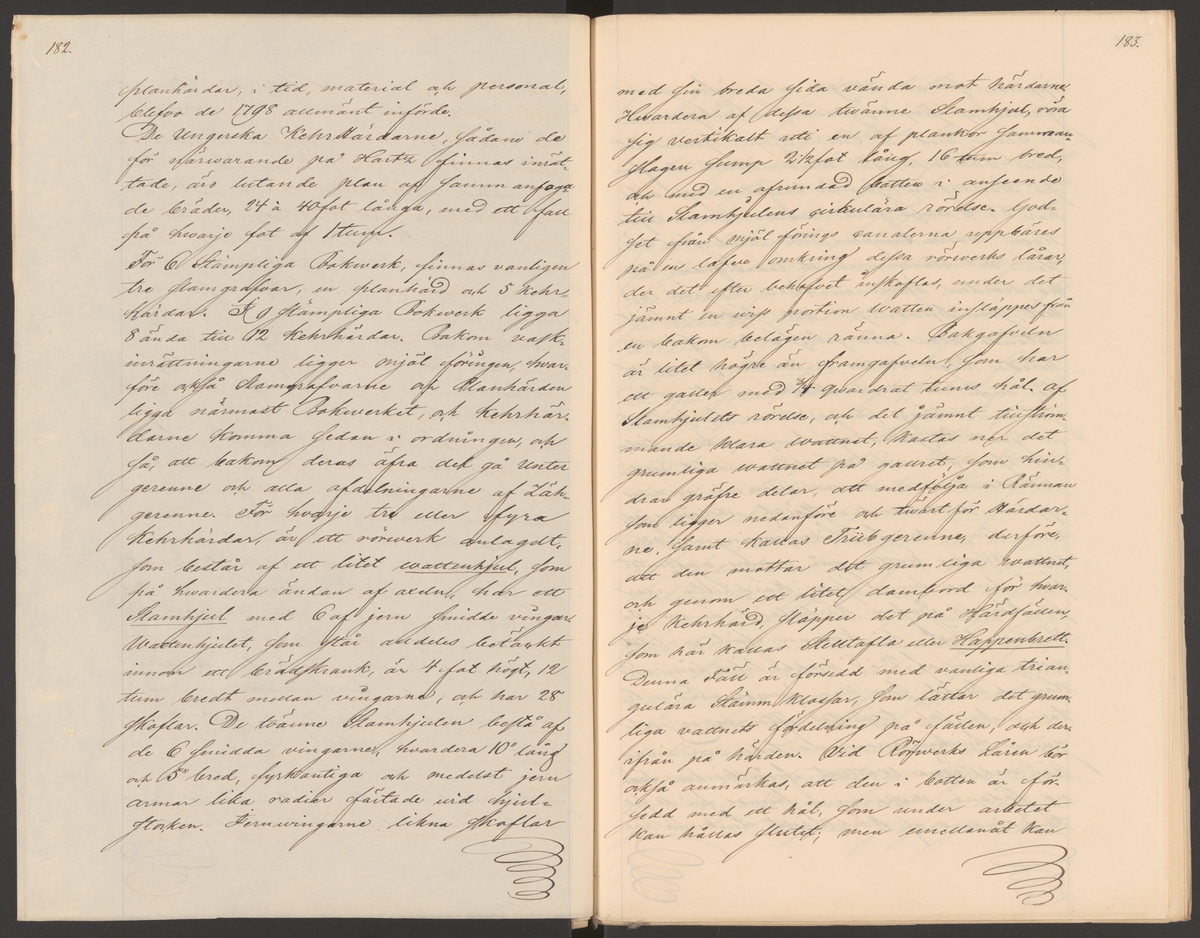 182.
planhärdar, i tid, material och personal,
blefvo de 1798 allmänt införde.
De Ungerska Kehrhärdarne, sådane de
för närwarande på Hartz finnas inrät-
tade, äro lutande plan af sammanfoga-
de bräder, 24 à 40 fot långa, med ett fall
på hwarje fot af 1 tum.
För 6 Stämpliga Bokwerk, finnas vanligen
tre slamgrafvar, en planhärd och 5 kehr-
härdar. Til 9 stämpliga Bokwerk ligga
8 ända till 12 Kehrhärdar. Bakom vask-
inrättningarne ligger mjölföringen, hvar-
före också Slamgrafvarne och Planhärden
ligga närmast Bokwerket, och kehrhär-
darne komma sedan i ordningen, och
så, att bakom deras öfra del gå Unter
gerenne och alla afdelningarne af Zäh-
gerenne. För hvarje tre eller fyra
Kehrhärdar, är ett rörwerk anlagdt,
som består af ett litet wattenhjul, som
på hwardera ändan af axeln, har ett
Slamhjul med 6 af jern smidde vingar.
Wattenhjulet, som står alldeles betäckt
innom ett brädskrank, är 4 fot högt, 12
tum bredt mellan vingarne, och har 28
skoflar. De tvänne Slamhjulen bestå af
de 6 smidda vingarne, hvardera 10" lång
och 5" bred, fyrkantiga och medelst jern
armar lika radier fästade wid hjul-
stocken. Jernwingarne likna skoflar
183.
med sin breda sida vända mot härdarne.
Hwardera af dessa twänne Slamhjul, röra
sig vertikalt uti en af plankor samman-
slagen sump 2 1/2 fot lång, 16 tum bred,
och med en afrundad botten i anseende
till Slamhjulens cirkulära rörelse. God-
set från mjölförings canalerna uppbäres
på en lafve omkring dessa rörwerks lårar,
der det efter behofvet inskoflas, under det
jämnt en wiss portion Watten insläppes från
en bakom belägen ränna. Bakgafveln
är litet högre än framgafveln, som har
ett galler med 3/4 qwardrat tums hål. af
Slamhjulets rörelse, och det jämnt tillström-
mande klara wattnet, kastas ner det
grumliga wattnet på gallret, som hin-
drar gröfre delar, att medfölja i Rännan
som ligger nedanföre och twärt för Härdar-
ne, samt kallas Trübgerenne, derföre,
att den mottar det grumliga wattnet,
och genom ett litet dambord för hvar-
je Kehrhärd, släpper det på Härdfällen,
som här kallas Stelltafla eller Happenbrett.
Denna Fäll är försedd med vanliga trian-
gulära Stämm klossar, som lättar det grum-
liga vattnets fördelning på fällen, och der-
ifrån på härden. Wid Rörwerks Låren bör
också anmärkas, att den i botten är för-
sedd med ett hål, som under arbetet
kan hållas slutet; men emellanåt kan